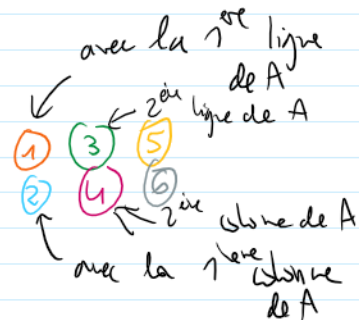 avec la 1ere ligne
de A
2eie ligne de A
1 3 5
2 4 6
2eie colonne de A
avec la 1ere colonne
de A